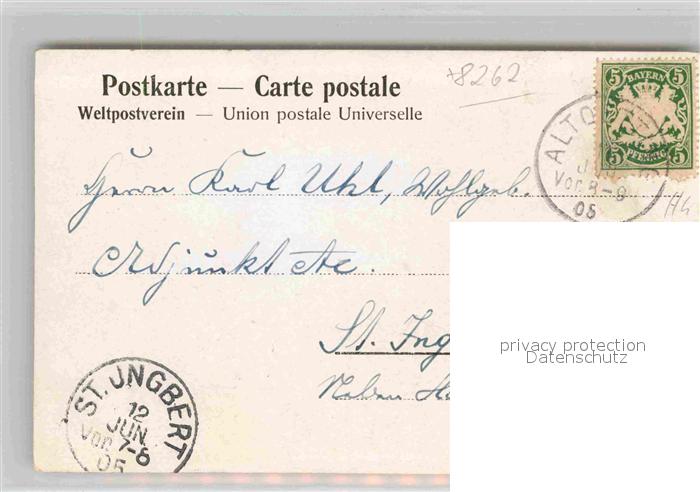 Postkarte — Carte postale
Weltpostverein — Union postale Universelle
+8262
5 BAYERN 5
5 PFENNIG 5
ALTO
JUN
Vor. 8-9
05
Herrn Karl Uhl, Wohlgeb.
Adjunkt etc.
St. Ing
privacy protection
Datenschutz
ST. JNGBERT
12
JUN
Vor. 7-8
05